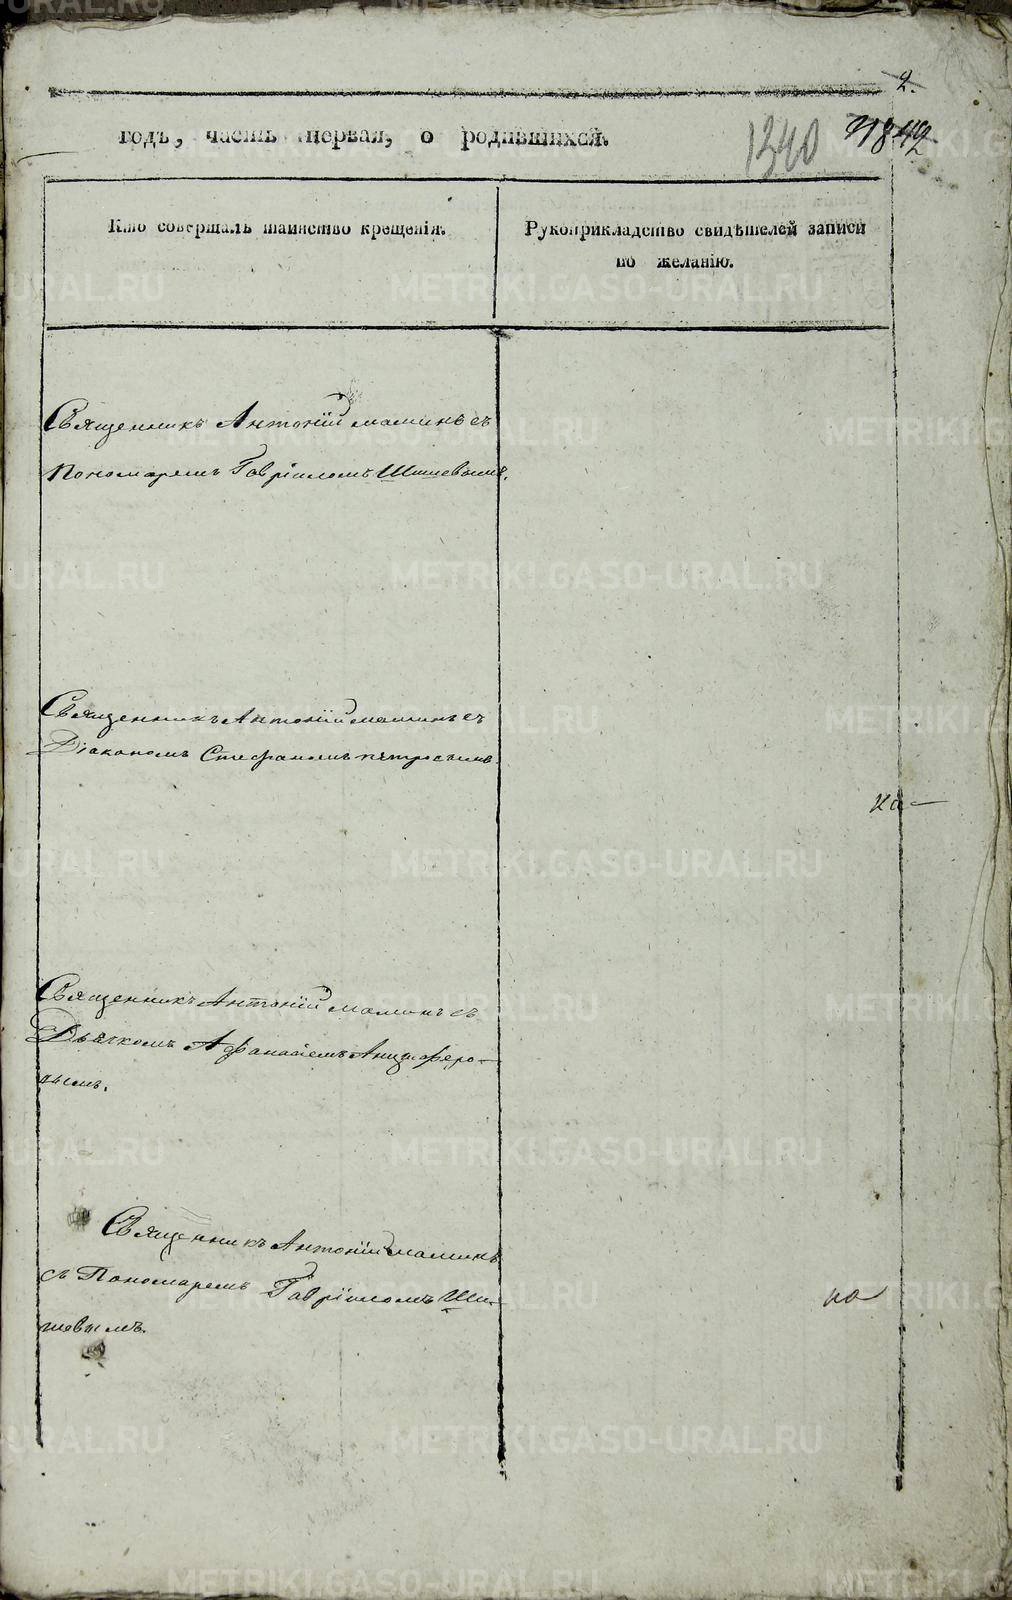 2.
годъ, часть первая, о родившихся.
1340
Кто совершалъ таинство крещенія.
Рукоприкладство свидѣтелей записи
по желанію.
Священникъ Антоній маминъ съ
Пономаремъ Гавріиломъ Шишевымъ.
Священникъ Антоній маминъ съ
Діакономъ Стефаномъ
на
Священникъ Антоній маминъ съ
Дьячкомъ Афанасіемъ Анциферо-
вымъ.
Священникъ Антоній маминъ
съ Пономаремъ Гавріиломъ Ши-
шевымъ.
на
METRIKI.GASO-URAL.RU